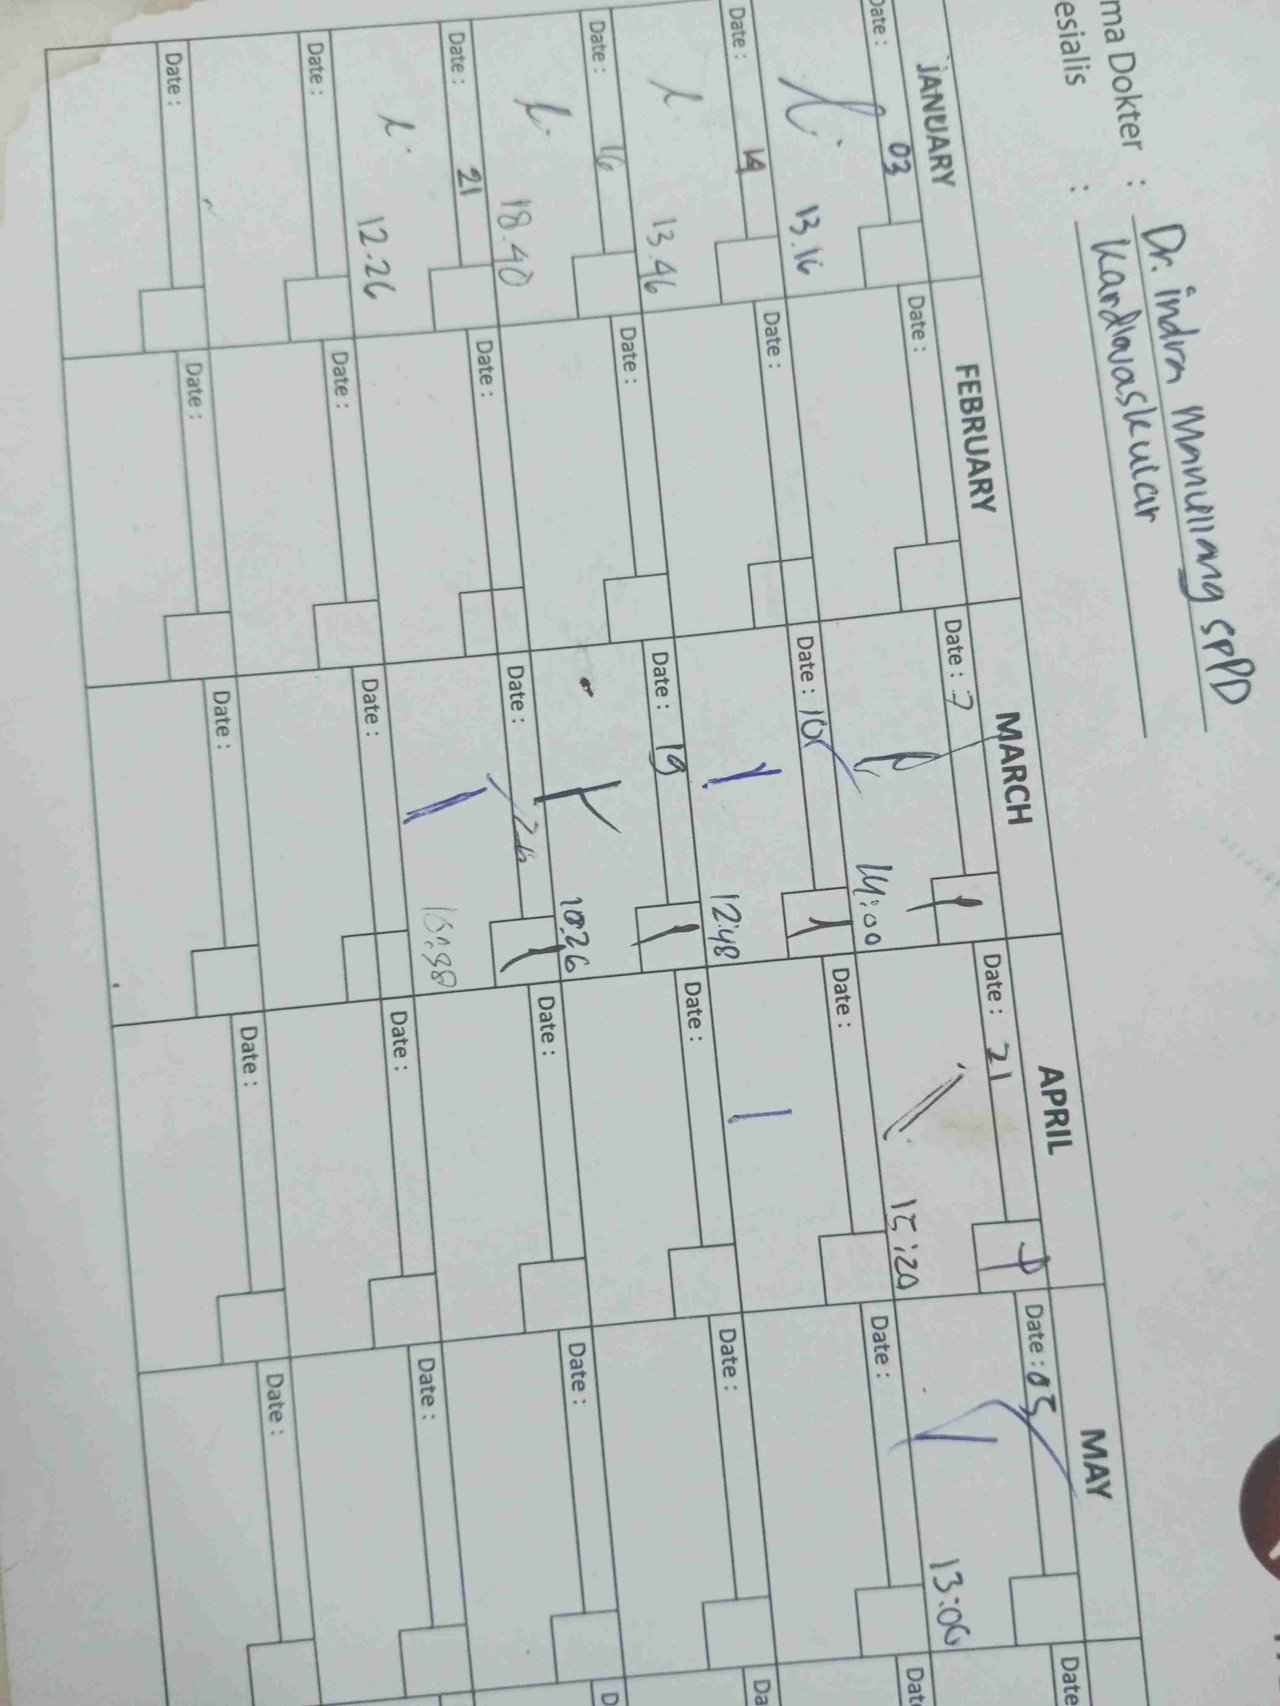 ma Dokter : Dr. indra Manullang SpPD
esialis : Kardiovaskular
JANUARY FEBRUARY MARCH APRIL MAY
Date : 03 Date : Date : 7 Date : 21 Date : 05 Date
13.16 14:00 15:20 13:06
Date : 14 Date : Date : 10 Date : Date : Dat
13.46 12:48
Date : 16 Date : Date : 19 Date : Date : Da
18.40 18:26
Date : 21 Date : Date : 26 Date : Date : D
12.26
Date : Date : Date : Date : Date :
Date : Date : Date : Date : Date :